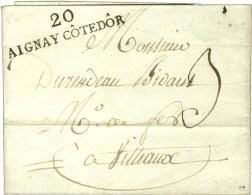 20
AIGNAY CÔTEDÔR
Monsieur
Durendeau Bidault
Md de fer
à Villiaux